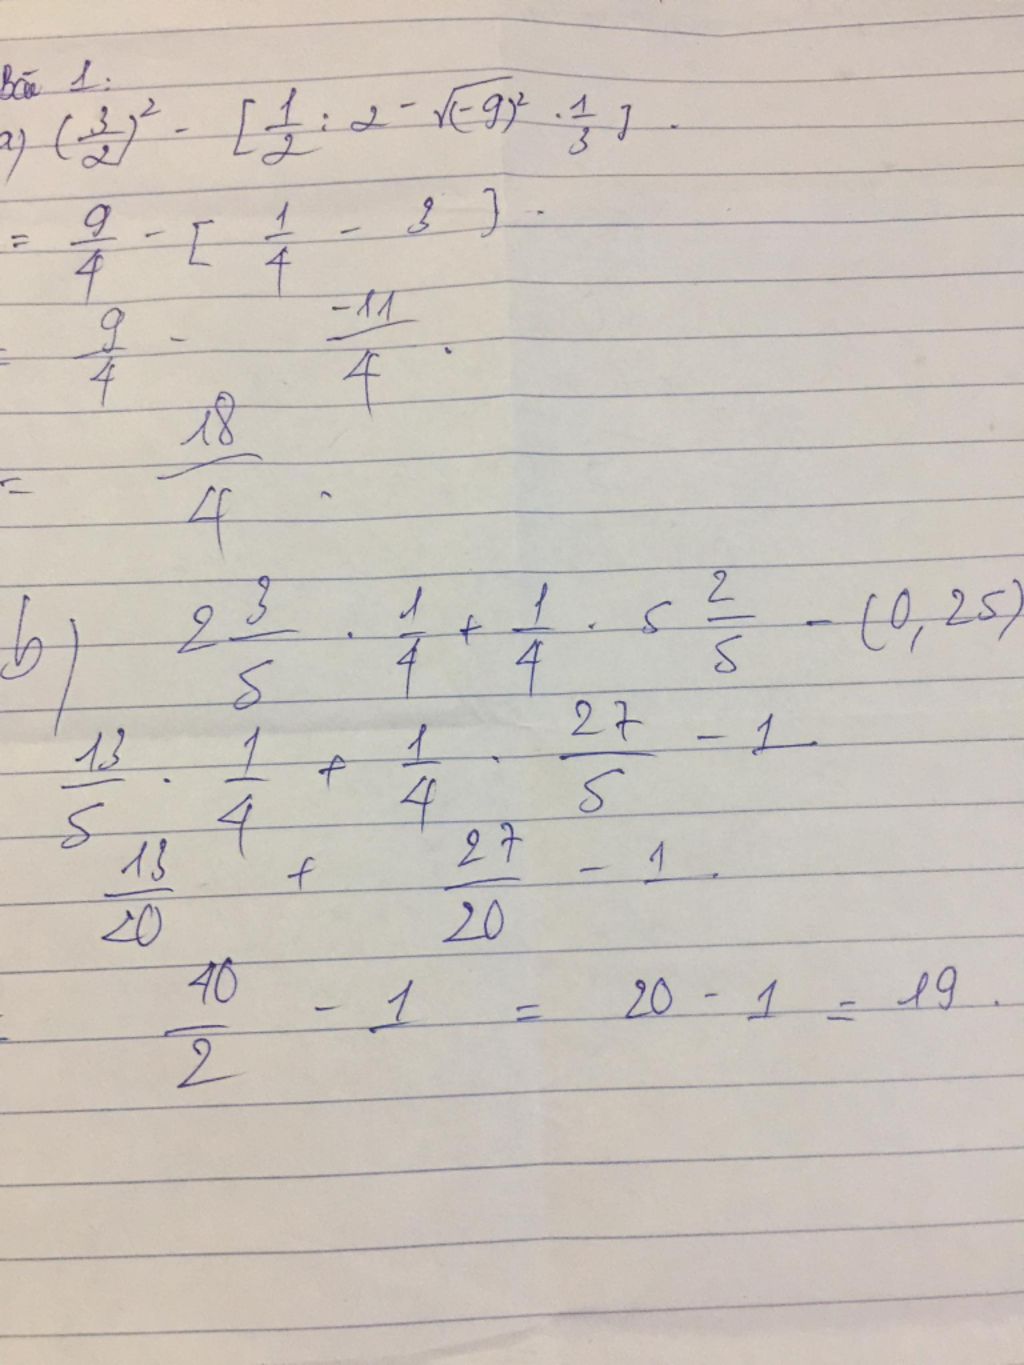 Bài 1:
a) (3/2)² - [1/2 : 2 - √(-9)² . 1/3] .
= 9/4 - [1/4 - 3] .
= 9/4 - -11/4 .
= 18/4 .
b) 2 3/5 . 1/4 + 1/4 . 5 2/5 - (0,25)
13/5 . 1/4 + 1/4 . 27/5 - 1
13/20 + 27/20 - 1 .
= 40/2 - 1 = 20 - 1 = 19 .